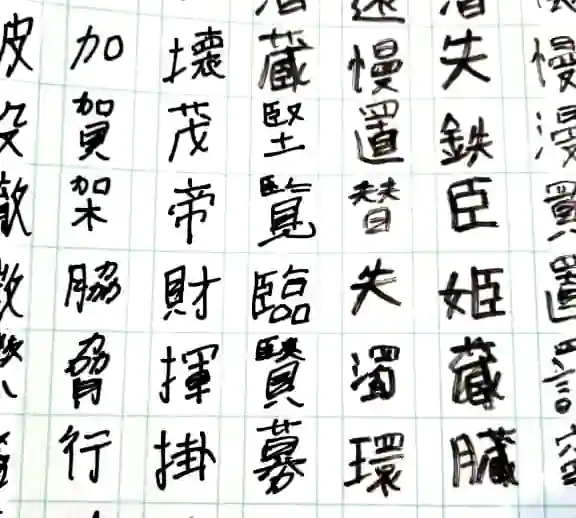 慢漫買置罰
失鉄臣姫蔵臓
慢置替失濁環
蔵堅覧臨賢募
壊茂帝財揮掛
加賀架脇脅行